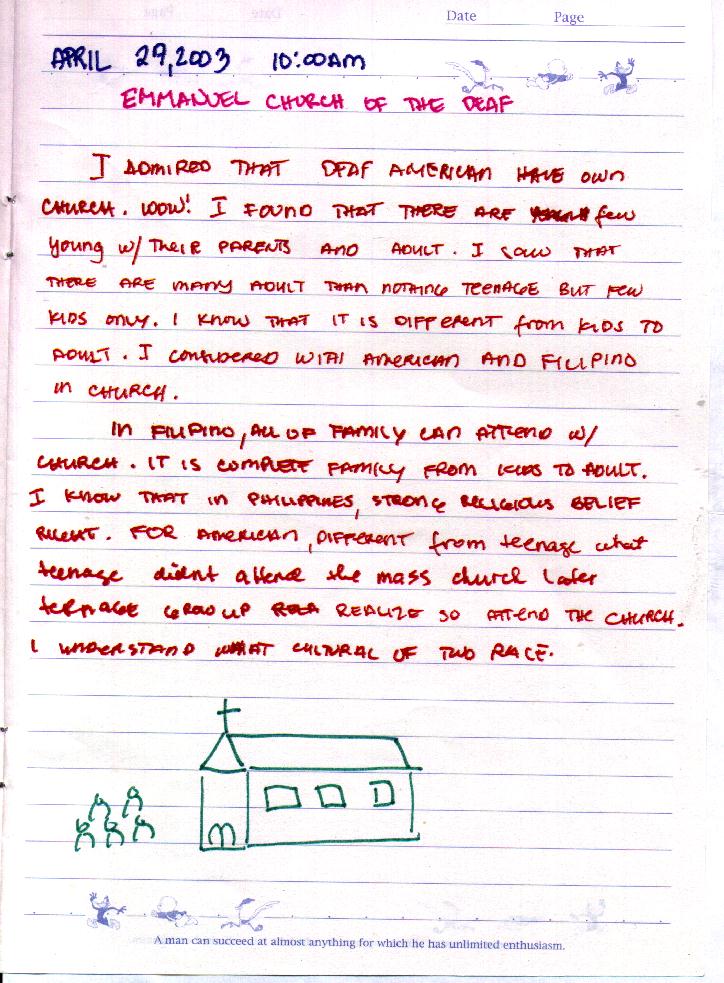 Date Page
APRIL 29, 2003 10:00AM
EMMANUEL CHURCH OF THE DEAF
I ADMIRED THAT DEAF AMERICAN HAVE OWN
CHURCH. WOW! I FOUND THAT THERE ARE few
young w/ THEIR PARENTS AND ADULT. I SAW THAT
THERE ARE MANY ADULT THAN NOTHING TEENAGE BUT FEW
KIDS ONLY. I KNOW THAT IT IS DIFFERENT from KIDS TO
ADULT. I CONSIDERED WITH AMERICAN AND FILIPINO
IN CHURCH.
IN FILIPINO, ALL OF FAMILY CAN ATTEND W/
CHURCH. IT IS COMPLETE FAMILY FROM KIDS TO ADULT.
I KNOW THAT IN PHILIPPINES, STRONG RELIGIOUS BELIEF
RIGHT. FOR AMERICAN, DIFFERENT from teenage what
teenage didnt attend the mass church later
teenage GROW UP REALIZE SO ATTEND THE CHURCH.
I UNDERSTAND WHAT CULTURAL OF TWO RACE.
A man can succeed at almost anything for which he has unlimited enthusiasm.